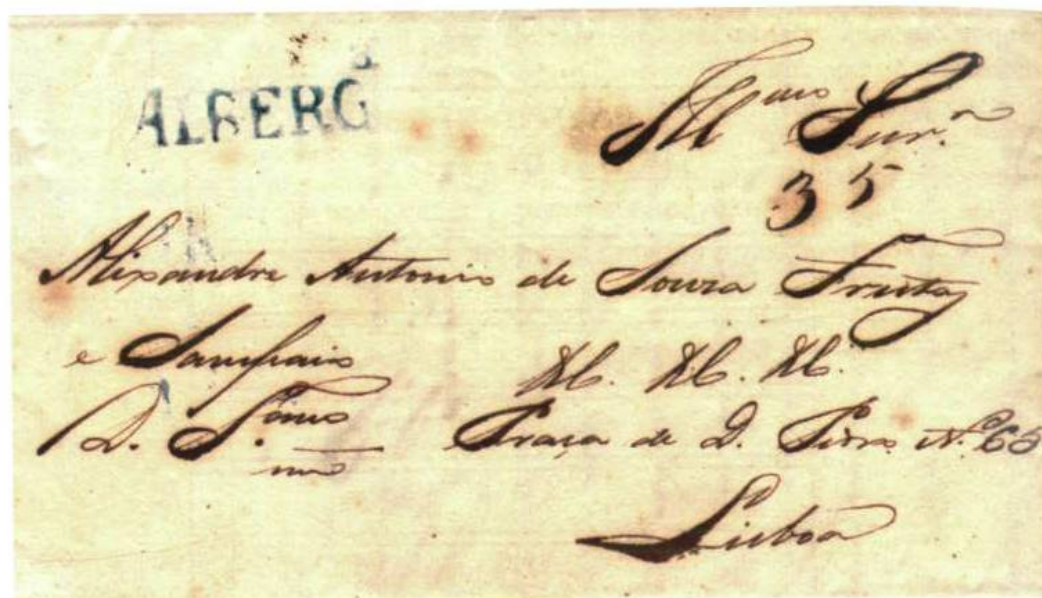 ALBERG
Illmo Snr.
35
Alixandre Antonio de Souza Freitas
e Sampaio
&c. &c. &c.
Praça de D. Pedro Nº 65
Lisboa